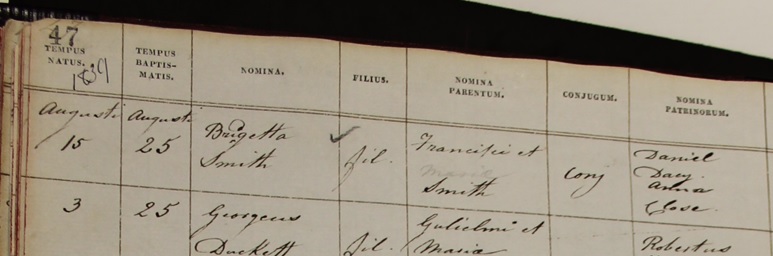 47
TEMPUS NATUS. TEMPUS BAPTIS-MATIS. NOMINA. FILIUS. NOMINA PARENTUM. CONJUGUM. NOMINA PATRINORUM.
Augusti Augusti Brigetta Francisci et Daniel
15 25 Smith fil. Maria Cong
Smith Anna
Close.
3 25 Georgeus Gulielmi et Robertus
Duckett fil. Maria